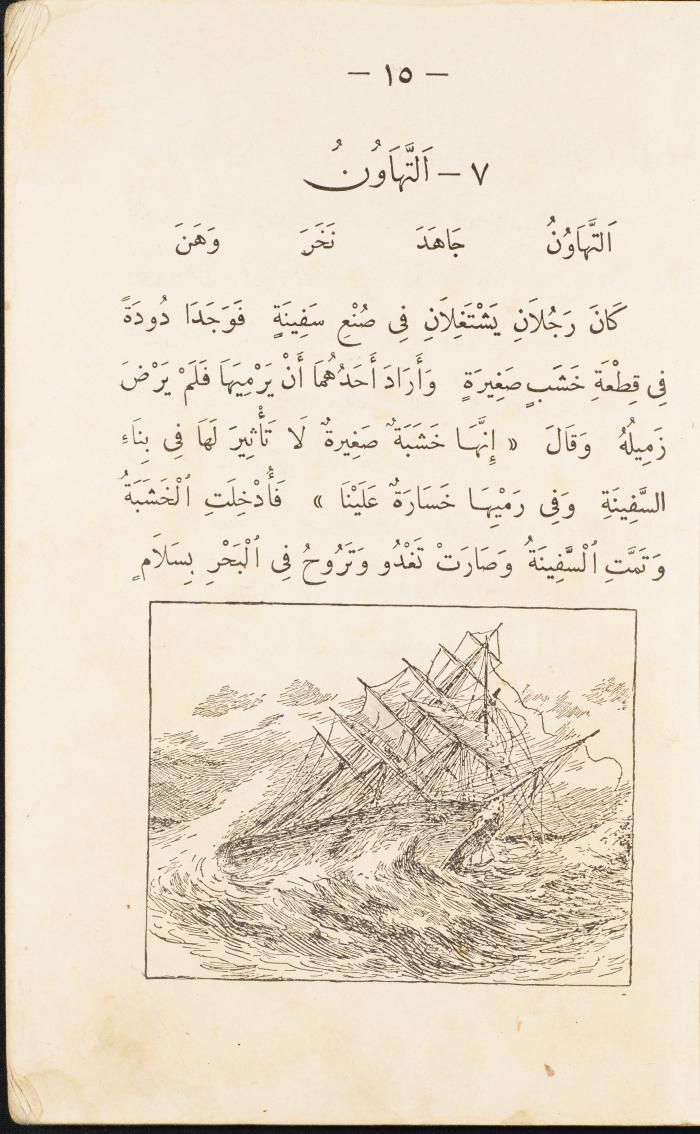 — ١٥ —
٧ — اَلتَّهَاوُنُ
اَلتَّهَاوُنُ جَاهَدَ نَخَرَ وَهَنَ
كَانَ رَجُلَانِ يَشْتَغِلَانِ فِى صُنْعِ سَفِينَةٍ فَوَجَدَا دُودَةً
فِى قِطْعَةِ خَشَبٍ صَغِيرَةٍ وَأَرَادَ أَحَدُهُمَا أَنْ يَرْمِيَهَا فَلَمْ يَرْضَ
زَمِيلُهُ وَقَالَ « إِنَّهَا خَشَبَةٌ صَغِيرةٌ لَا تَأْثِيرَ لَهَا فِى بِنَاءِ
السَّفِينَةِ وَفِى رَمْيِهَا خَسَارَةٌ عَلَيْنَا » فَأُدْخِلَتِ ٱلْخَشَبَةُ
وَتَمَّتِ ٱلْسَّفِينَةُ وَصَارَتْ تَغْدُو وَتَرُوحُ فِى ٱلْبَحْرِ بِسَلَامٍ